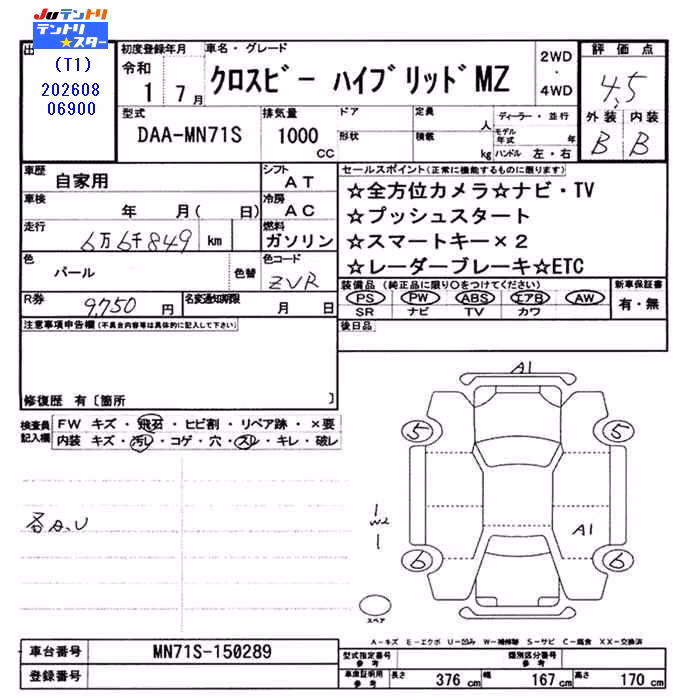 JUテントリ
テントリ
★スター
出
(T1)
202608
06900
初度登録年月
令和
1 7月
車名・グレード
クロスビー ハイブリッド MZ
2WD
・
4WD
評価点
4.5
外装 内装
B B
型式
DAA-MN71S
排気量
1000
CC
ドア
形状
定員
人
積載
kg
ディーラー・並行
モデル年式 年
ハンドル 左・右
車歴
自家用
シフト
AT
車検
年 月( 日)
冷房
AC
走行
6万6千849 km
燃料
ガソリン
色
パール
色替
色コード
ZVR
R券
9,750 円
名変通知期限
月 日
セールスポイント(正常に機能するものに限ります)
☆全方位カメラ☆ナビ・TV
☆プッシュスタート
☆スマートキー×2
☆レーダーブレーキ☆ETC
装備品 (純正品に限り○をつけてください)
PS PW ABS エアB AW
SR ナビ TV カワ
新車保証書
有・無
注意事項申告欄(不具合内容等は具体的に記入して下さい)
後日品
修復歴 有〔箇所 〕
検査員
記入欄
FW キズ・飛石・ヒビ割・リペア跡・×要
内装 キズ・汚レ・コゲ・穴・スレ・キレ・破レ
各A、U
A1
5 5
1
W2
1
A1
6 6
スペア
A-キズ E-エクボ U-凹み W-補修跡 S-サビ C-腐食 XX-交換済
車台番号
MN71S-150289
登録番号
型式指定番号
参考
類別区分番号
参考
車庫証明用
参考
長さ 376 cm 幅 167 cm 高さ 170 cm